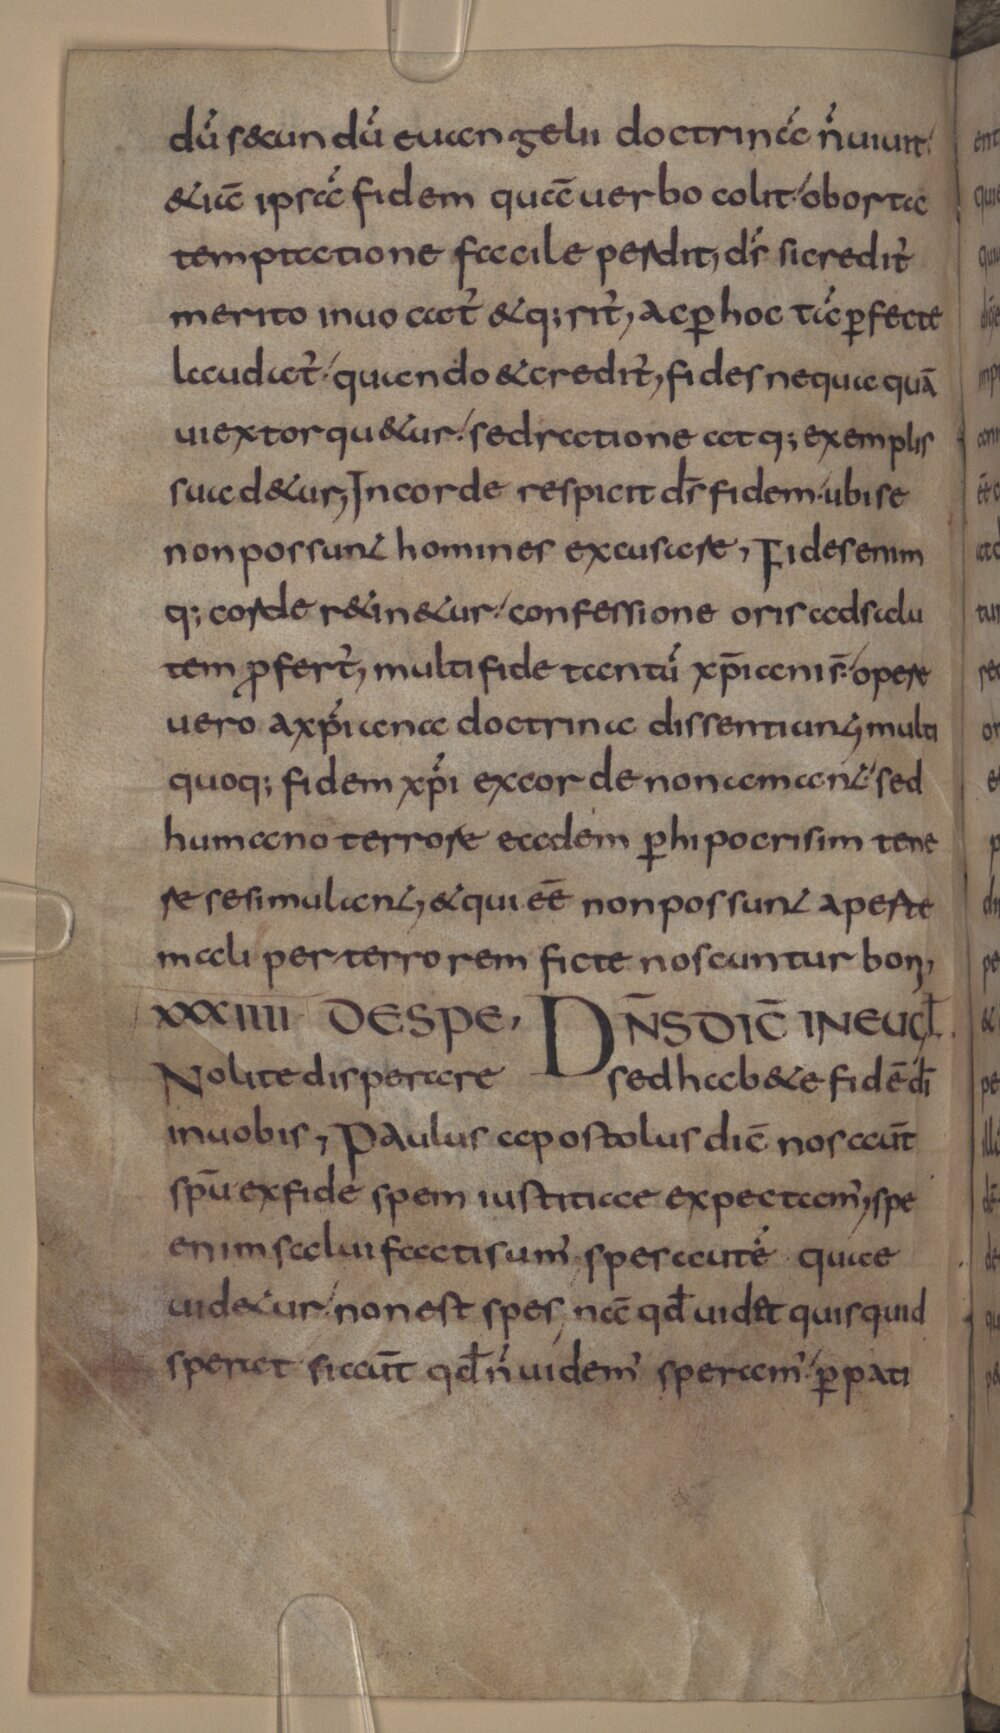 dū secundū euangelii doctrinā n̄ uiuit.
&iā ipsā fidem quā uerbo colit. oborta
temptatione facile perdit, d̄s si credit̄
merito inuocat̄ & q; rit̄, ac ꝑ hoc tc̄ ꝑfecte
laudat̄. quando & credit̄, fides nequaquā
ui extorqu&ur. sed ratione atq; exemplis
suad&ur, In corde respicit d̄s fidem. ubi se
non possunt homines excusare, Fides enim
q; corde r&in&ur. confessione oris ad salu
tem ꝓfert̄, multi fide tantū xp̄iani s̄. opere
uero a xp̄iana doctrina dissentiunt, multi
quoq; fidem xp̄i ex corde non amant. sed
humano terrore eadem ꝑ hipocrisim tene
re se simulant, & qui eē non possunt aperte
mali per terrorem ficte noscuntur boni,
XXXIIII DE SPE, DN̄S DIC̄ IN EUGL̄.
Nolite disperare sed hab&e fidē dī
in uobis, Paulus apostolus dic̄ nos aūt
spū ex fide spem iustitiae expectam', spe
enim salui facti sum'. spes autē quae
uid&ur. non est spes, nā qd̄ uid& quis quid
sperat si aūt qd̄ n̄ uidem' speram'. ꝑ pati